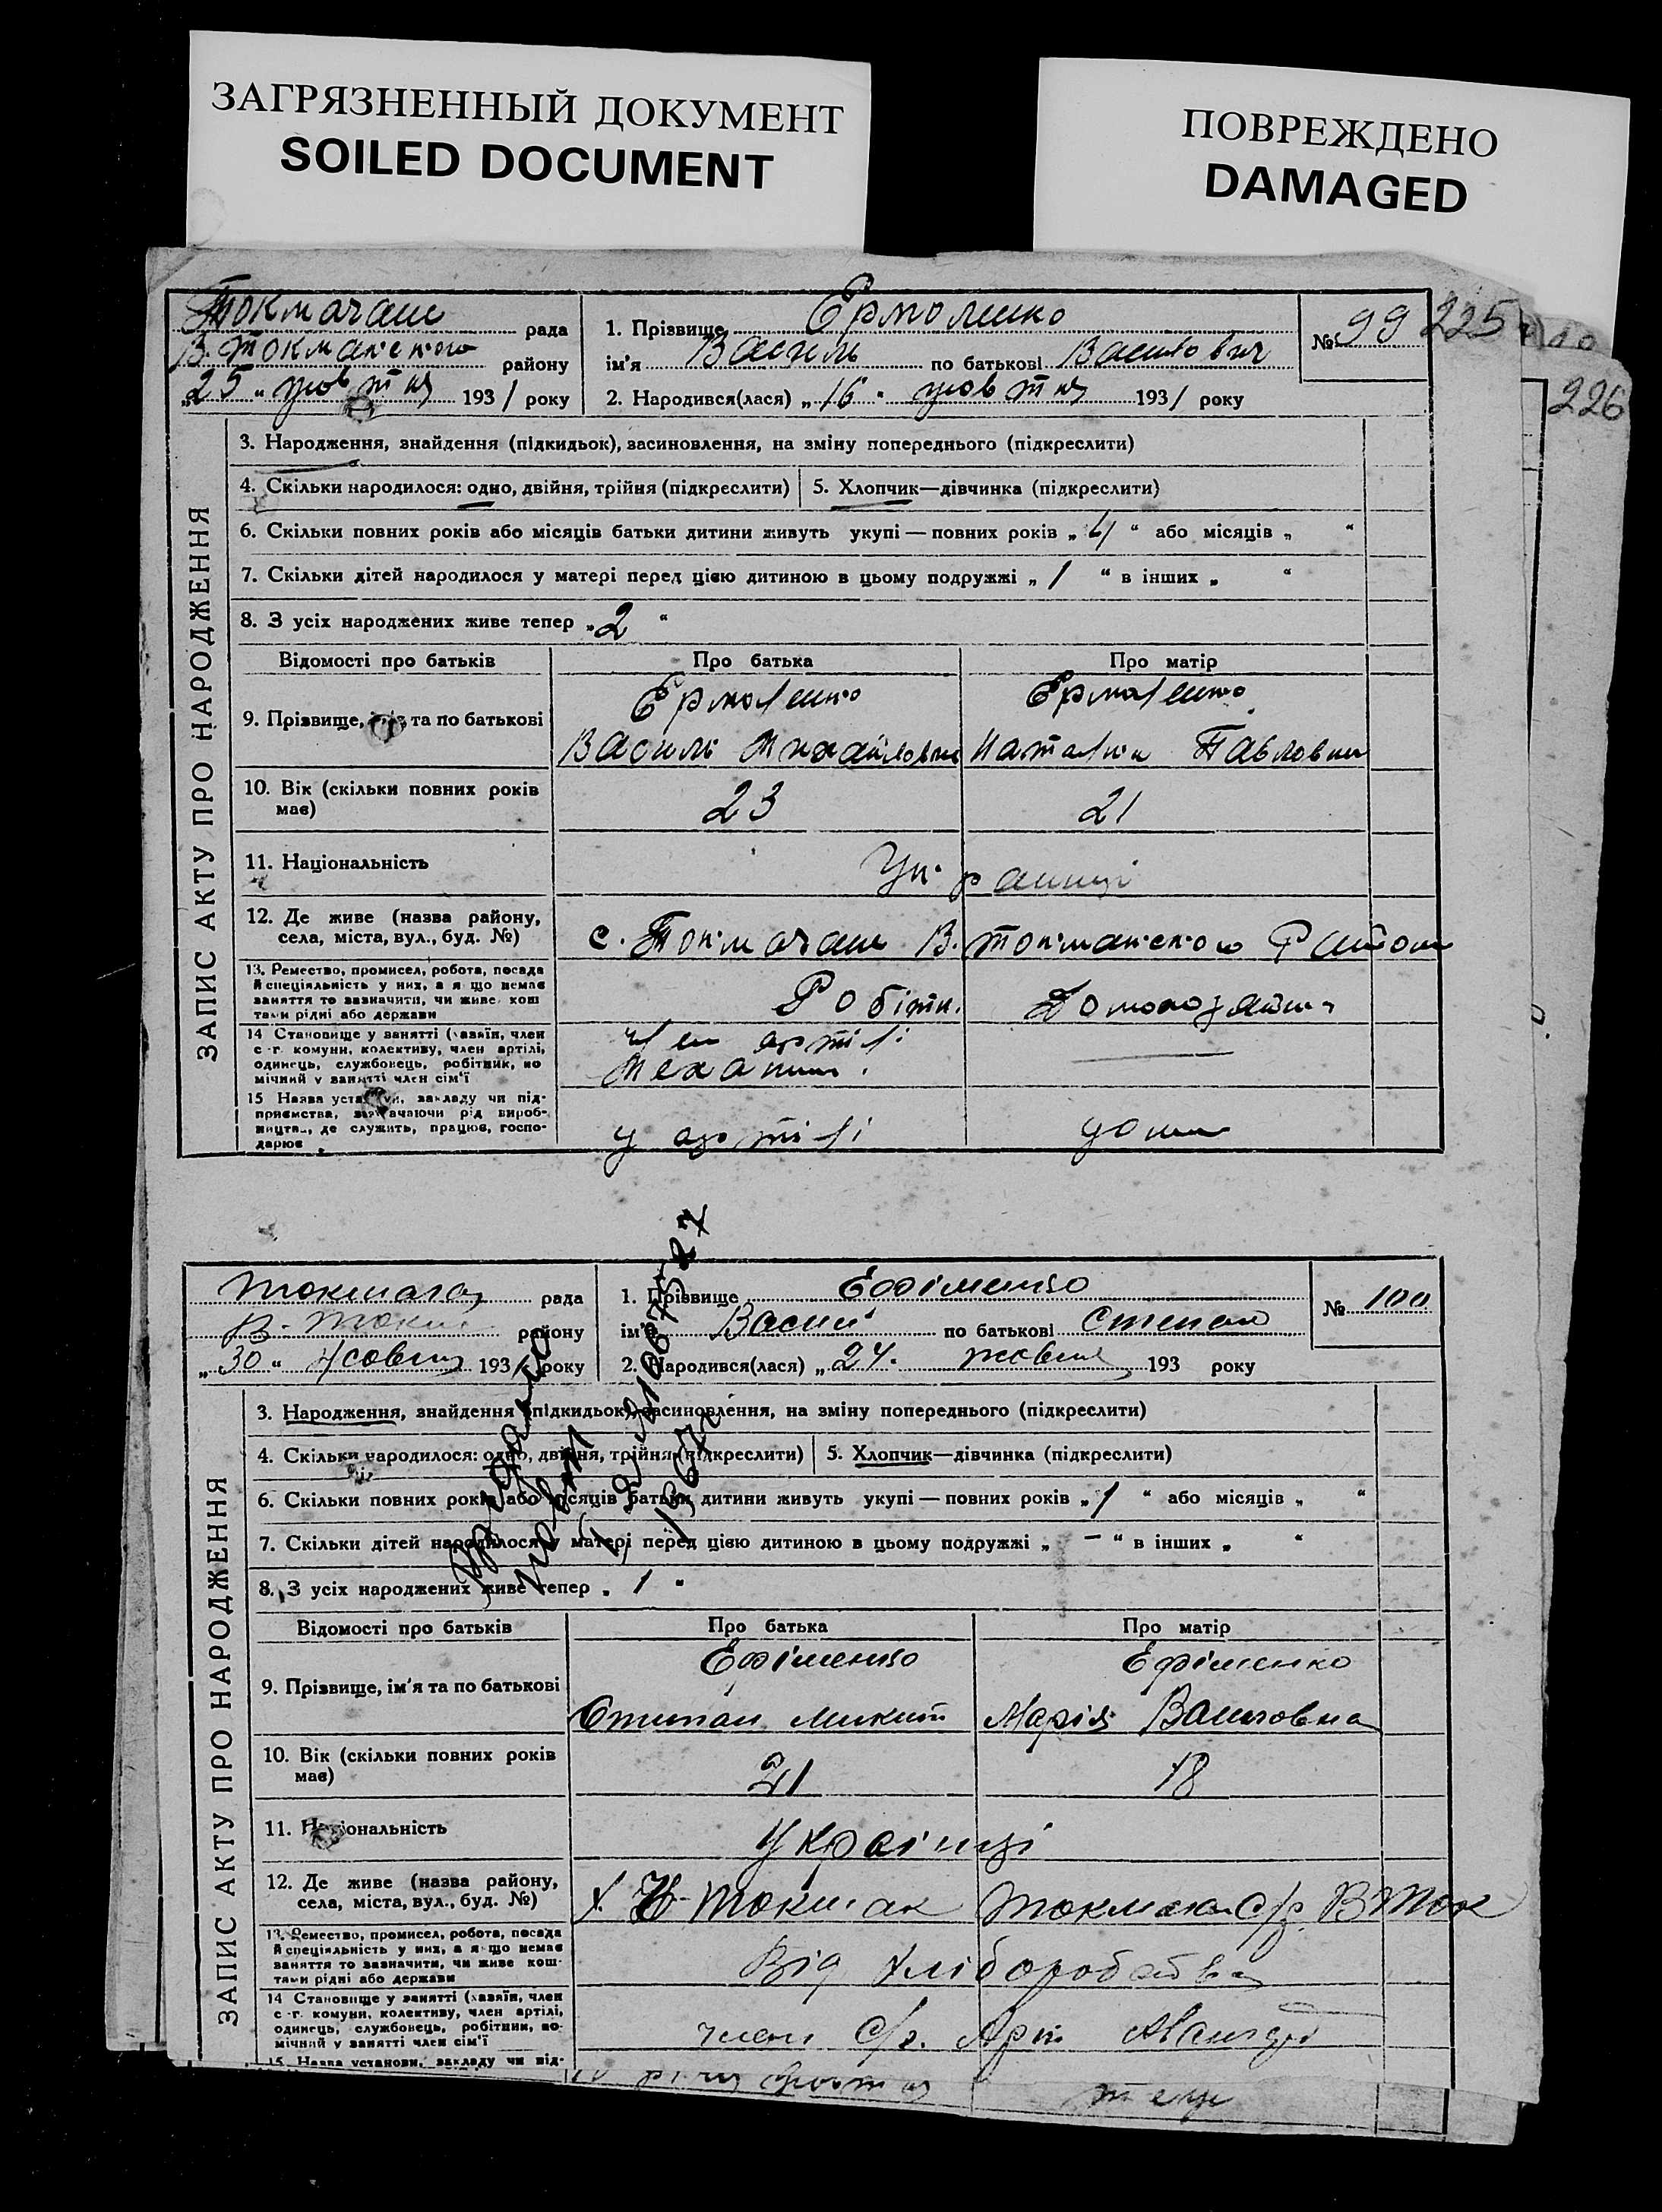 ЗАГРЯЗНЕННЫЙ ДОКУМЕНТ
SOILED DOCUMENT
ПОВРЕЖДЕНО
DAMAGED
225
226
рада
В. району
„25“ жовтня 1931 року
1. Прізвище Ермоленко
ім'я Василь по батькові
2. Народився(лася) „16“ жовтня 1931 року
№ 99
ЗАПИС АКТУ ПРО НАРОДЖЕННЯ
3. Народження, знайдення (підкидьок), засиновлення, на зміну попереднього (підкреслити)
4. Скільки народилося: одно, двійня, трійня (підкреслити) 5. Хлопчик—дівчинка (підкреслити)
6. Скільки повних років або місяців батьки дитини живуть укупі — повних років „4“ або місяців „ “
7. Скільки дітей народилося у матері перед цією дитиною в цьому подружжі „1“ в інших „ “
8. З усіх народжених живе тепер „2“
Відомості про батьків Про батька Про матір
9. Прізвище, та по батькові
Ермоленко Ермоленко
Василь
10. Вік (скільки повних років має) 23 21
11. Національність
12. Де живе (назва району, села, міста, вул., буд. №)
с. В.
13. Ремество, промисел, робота, посада
й спеціяльність у них, а якщо немає
заняття то зазначити, чи живе кош
тами рідні або держави
Робітн.
14 Становище у занятті (хазяїн, член
с.-г. комуни, колективу, член артілі,
одинець, службовець, робітник, по
мічний у занятті член сім'ї
член артілі
15 Назва установи, закладу чи під-
приємства, зазначаючи рід вироб-
ництва, де служить, працює, госпо-
дарює
у артілі дома
рада
району
„30“ жовтня 193 року
1. Прізвище Ефіменко
ім'я по батькові Степан
2. Народився(лася) „24“ жовтня 193 року
№ 100
ЗАПИС АКТУ ПРО НАРОДЖЕННЯ
3. Народження, знайдення (підкидьок), засиновлення, на зміну попереднього (підкреслити)
4. Скільки народилося: одно, двійня, трійня (підкреслити) 5. Хлопчик—дівчинка (підкреслити)
6. Скільки повних років або місяців батьки дитини живуть укупі — повних років „1“ або місяців „ “
7. Скільки дітей народилося у матері перед цією дитиною в цьому подружжі „—“ в інших „ “
8. З усіх народжених живе тепер „1“
Відомості про батьків Про батька Про матір
9. Прізвище, ім'я та по батькові
Ефіменко Ефіменко
Степан Микит Марія Василовна
10. Вік (скільки повних років має) 21 18
11. Національність українці
12. Де живе (назва району, села, міста, вул., буд. №)
х. Н-Токмак Токмак с/р
13. Ремество, промисел, робота, посада
й спеціяльність у них, а якщо немає
заняття то зазначити, чи живе кош-
тами рідні або держави
Від хліборобства
14 Становище у занятті (хазяїн, член
с.-г. комуни, колективу, член артілі,
одинець, службовець, робітник, по-
мічний у занятті член сім'ї
член с/г. Арт
15 Назва установи, закладу чи під-